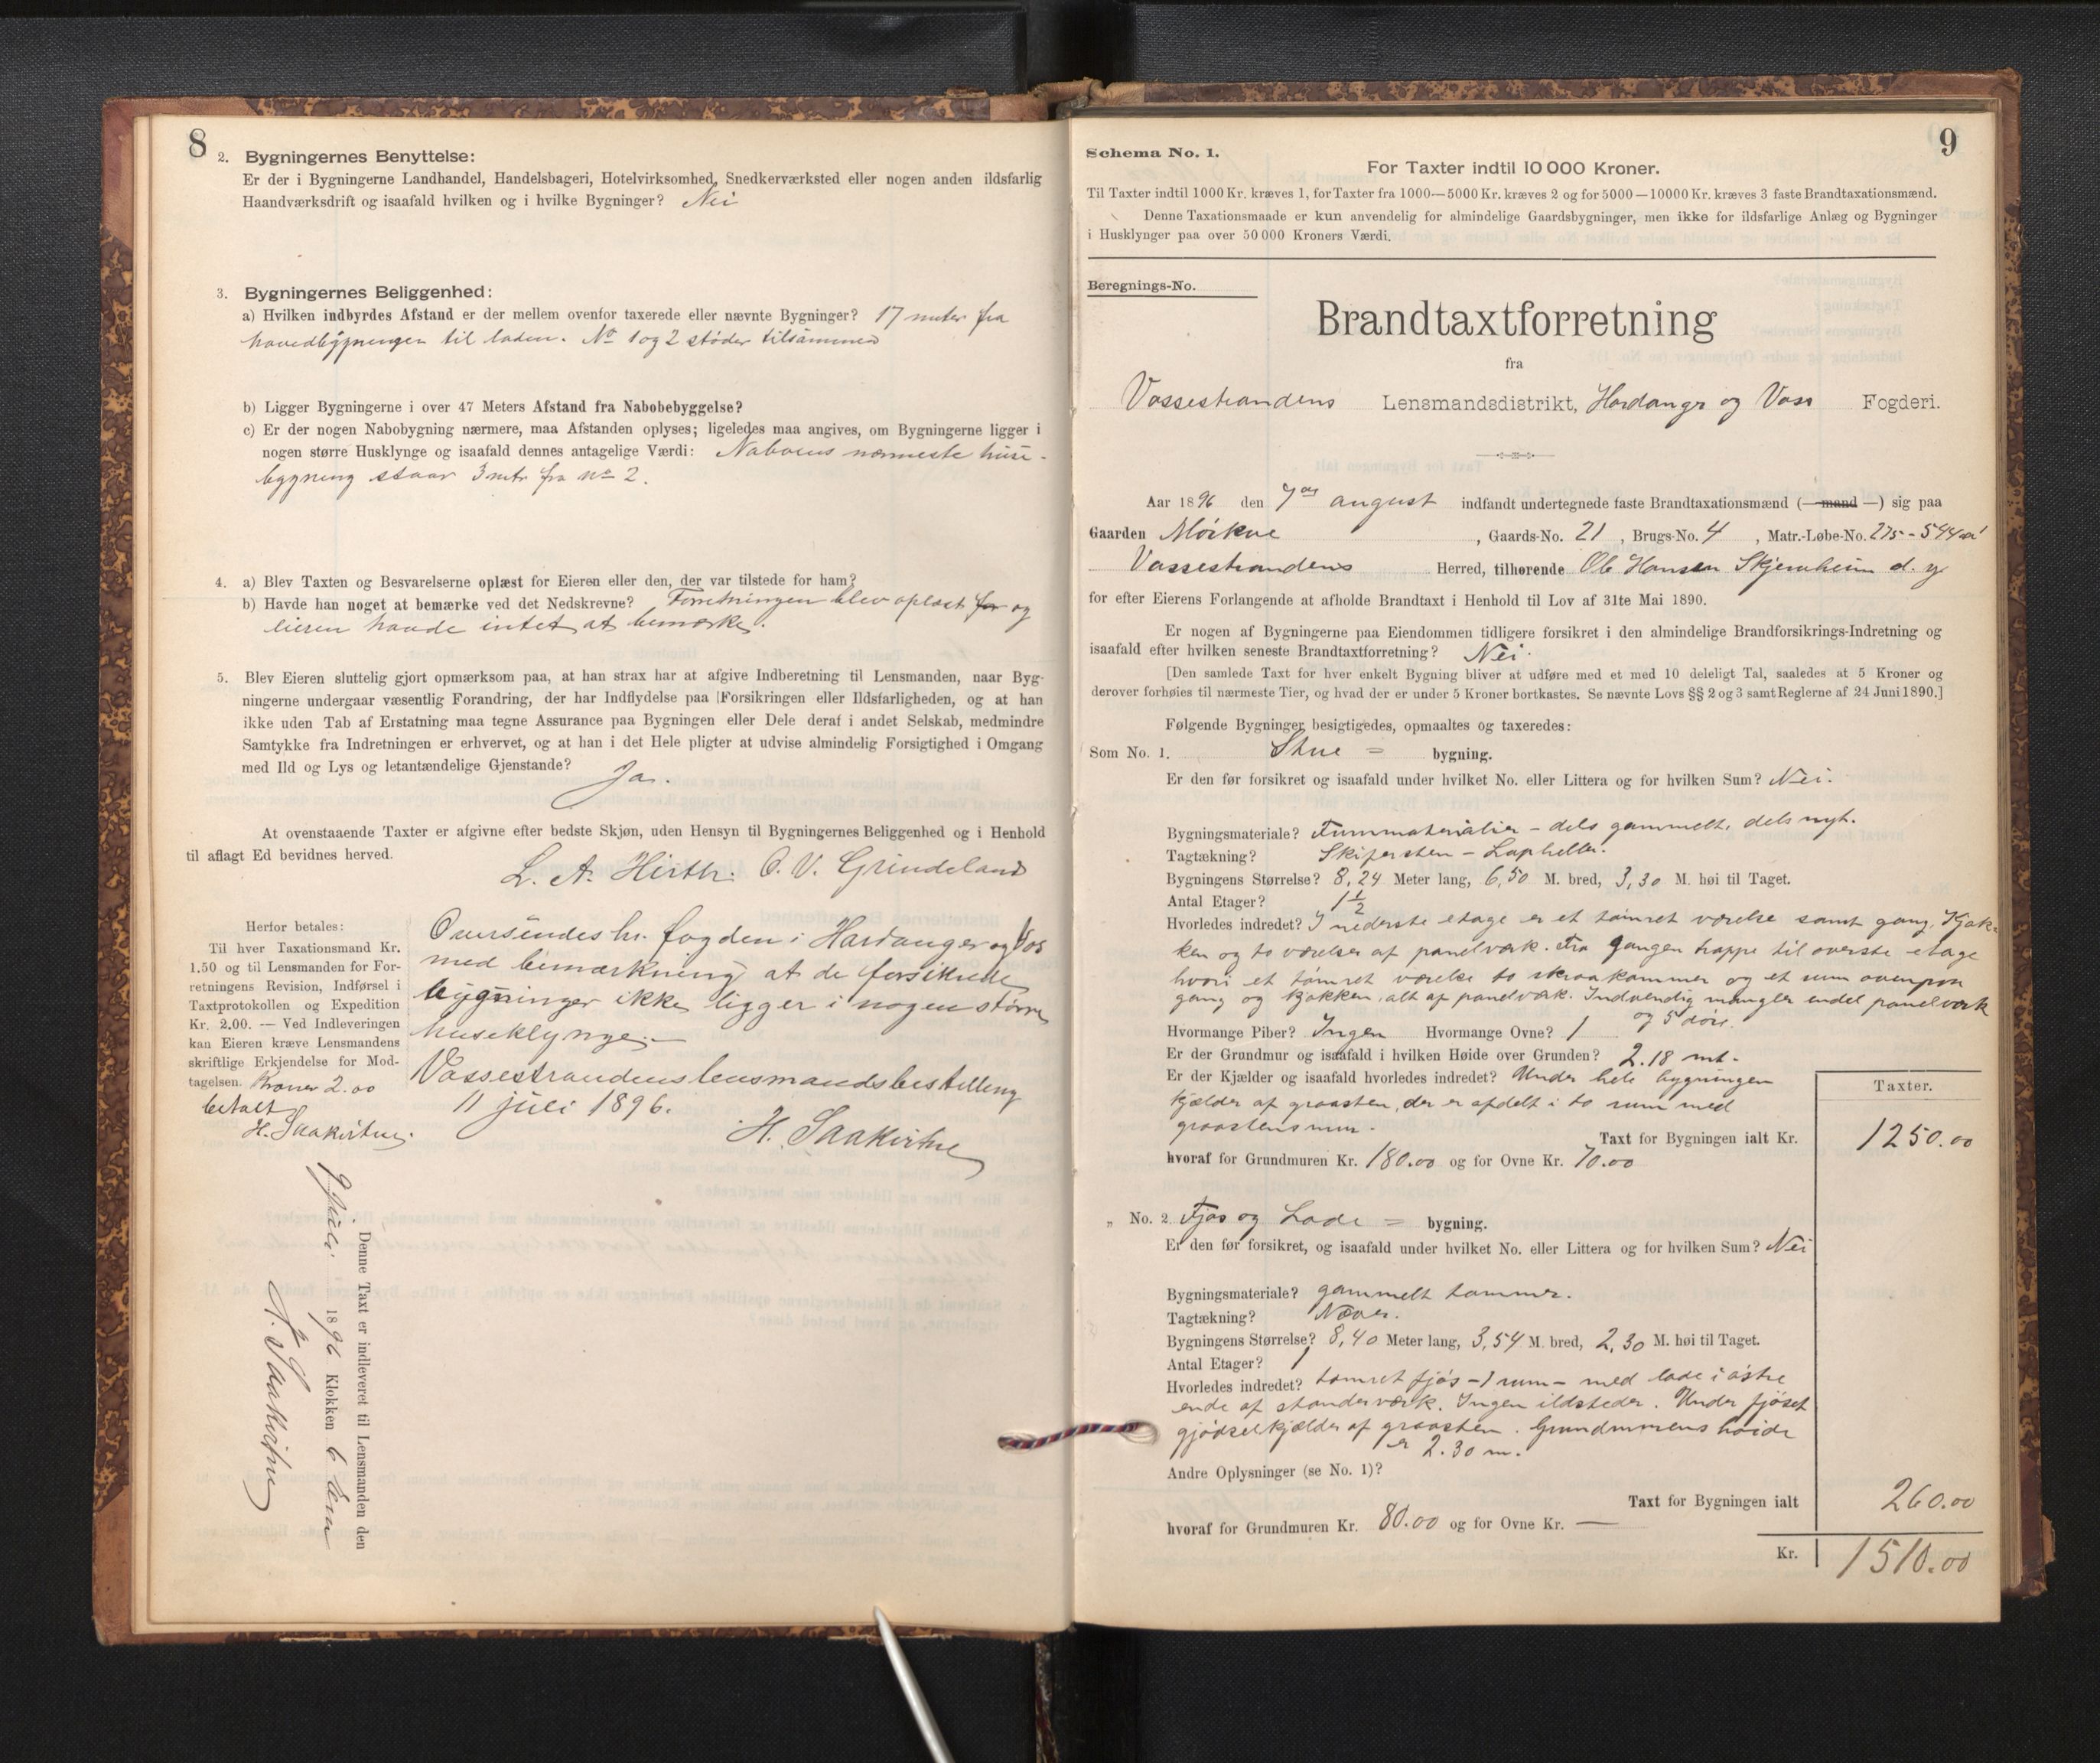 8
2. Bygningernes Benyttelse:
Er der i Bygningerne Landhandel, Handelsbageri, Hotelvirksomhed, Snedkerværksted eller nogen anden ildsfarlig
Haandværksdrift og isaafald hvilken og i hvilke Bygninger? Nei
3. Bygningernes Beliggenhed:
a) Hvilken indbyrdes Afstand er der mellem ovenfor taxerede eller nævnte Bygninger? 17 meter fra
hovedbygningen til laden. No 1 og 2 støder tilsammen
b) Ligger Bygningerne i over 47 Meters Afstand fra Nabobebyggelse?
c) Er der nogen Nabobygning nærmere, maa Afstanden oplyses; ligeledes maa angives, om Bygningerne ligger i
nogen større Husklynge og isaafald dennes antagelige Værdi: Naboens nærmeste huse-
bygning staar 3 mtr fra no 2.
4. a) Blev Taxten og Besvarelserne oplæst for Eieren eller den, der var tilstede for ham?
b) Havde han noget at bemærke ved det Nedskrevne? Forretningen blev oplæst for og
eieren havde intet at bemærke.
5. Blev Eieren sluttelig gjort opmærksom paa, at han strax har at afgive Indberetning til Lensmanden, naar Byg-
ningerne undergaar væsentlig Forandring, der har Indflydelse paa Forsikringen eller Ildsfarligheden, og at han
ikke uden Tab af Erstatning maa tegne Assurance paa Bygningen eller Dele deraf i andet Selskab, medmindre
Samtykke fra Indretningen er erhvervet, og at han i det Hele pligter at udvise almindelig Forsigtighed i Omgang
med Ild og Lys og letantændelige Gjenstande? Ja.
At ovenstaaende Taxter er afgivne efter bedste Skjøn, uden Hensyn til Bygningernes Beliggenhed og i Henhold
til aflagt Ed bevidnes herved.
L. A. Hirth. O. V. Grindeland
Herfor betales:
Til hver Taxationsmand Kr.
1.50 og til Lensmanden for For-
retningens Revision, Indførsel i
Taxtprotokollen og Expedition
Kr. 2.00. — Ved Indleveringen
kan Eieren kræve Lensmandens
skriftlige Erkjendelse for Mod-
tagelsen. Kroner 2.00
betalt
H. Saakvitne.
Oversendes hr. fogden i Hardanger og Vos
med bemærkning at de forsikrede
bygninger ikke ligger i nogen større
huseklynge.—
Vossestrandens lensmandsbestilling
11 juli 1896.
H. Saakvitne
Denne Taxt er indleveret til Lensmanden den
9 juli 1896 Klokken 6 Em
H. Saakvitne
9
Schema No. 1.
For Taxter indtil 10 000 Kroner.
Til Taxter indtil 1000 Kr. kræves 1, for Taxter fra 1000—5000 Kr. kræves 2 og for 5000—10000 Kr. kræves 3 faste Brandtaxationsmænd.
Denne Taxationsmaade er kun anvendelig for almindelige Gaardsbygninger, men ikke for ildsfarlige Anlæg og Bygninger
i Husklynger paa over 50 000 Kroners Værdi.
Beregnings-No.
Brandtaxtforretning
fra
Vossestrandens Lensmandsdistrikt, Hardanger og Voss Fogderi.
Aar 1896 den 7de august indfandt undertegnede faste Brandtaxationsmænd (—mand—) sig paa
Gaarden Mörkve, Gaards-No. 21, Brugs-No. 4, Matr.-Løbe-No. 275 - 544
Vossestrandens Herred, tilhørende Ole Hansen Skjerveheim d. y
for efter Eierens Forlangende at afholde Brandtaxt i Henhold til Lov af 31te Mai 1890.
Er nogen af Bygningerne paa Eiendommen tidligere forsikret i den almindelige Brandforsikrings-Indretning og
isaafald efter hvilken seneste Brandtaxtforretning? Nei.
[Den samlede Taxt for hver enkelt Bygning bliver at udføre med et med 10 deleligt Tal, saaledes at 5 Kroner og
derover forhøies til nærmeste Tier, og hvad der er under 5 Kroner bortkastes. Se nævnte Lovs §§ 2 og 3 samt Reglerne af 24 Juni 1890.]
Følgende Bygninger besigtigedes, opmaaltes og taxeredes:
Som No. 1. Stue = bygning.
Er den før forsikret og isaafald under hvilket No. eller Littera og for hvilken Sum? Nei.
Bygningsmateriale? Furumaterialier - dels gammelt, dels nyt.
Tagtækning? Skifersten - Lapheller.
Bygningens Størrelse? 8,24 Meter lang, 6,50 M. bred, 3,30 M. høi til Taget.
Antal Etager? 1 1/2
Hvorledes indredet? I nederste etage er et tømret værelse samt gang, Kjøk-
ken og to værelser af panelværk. Fra gangen trappe til øverste etage
hvori et tømret værelse to skraakammer og et rum ovenpaa
gang og kjøkken, alt af panelværk. Indvendig mangler endel panelværk
og 5 døre.
Hvormange Piber? Ingen Hvormange Ovne? 1
Er der Grundmur og isaafald i hvilken Høide over Grunden? 2.18 mt.
Er der Kjælder og isaafald hvorledes indredet? Under hele bygningen
kjælder af graasten, der er afdelt i to rum med
graastensmur.
Taxter.
Taxt for Bygningen ialt Kr. 1250.00
hvoraf for Grundmuren Kr. 180.00 og for Ovne Kr. 70.00
„ No. 2. Fjøs og Lade = bygning.
Er den før forsikret, og isaafald under hvilket No. eller Littera og for hvilken Sum? Nei
Bygningsmateriale? gammelt tømmer.
Tagtækning? Næver.
Bygningens Størrelse? 8,40 Meter lang, 3,54 M. bred, 2,30 M. høi til Taget.
Antal Etager? 1
Hvorledes indredet? tømret fjøs - 1 rum - med lade i østre
ende af standerværk. Ingen ildsteder. Under fjøset
gjødselkjælder af graasten. Grundmurens høide
er 2.30 m.
Andre Oplysninger (se No. 1)?
Taxt for Bygningen ialt 260.00
hvoraf for Grundmuren Kr. 80.00 og for Ovne Kr. —
Kr. 1510.00